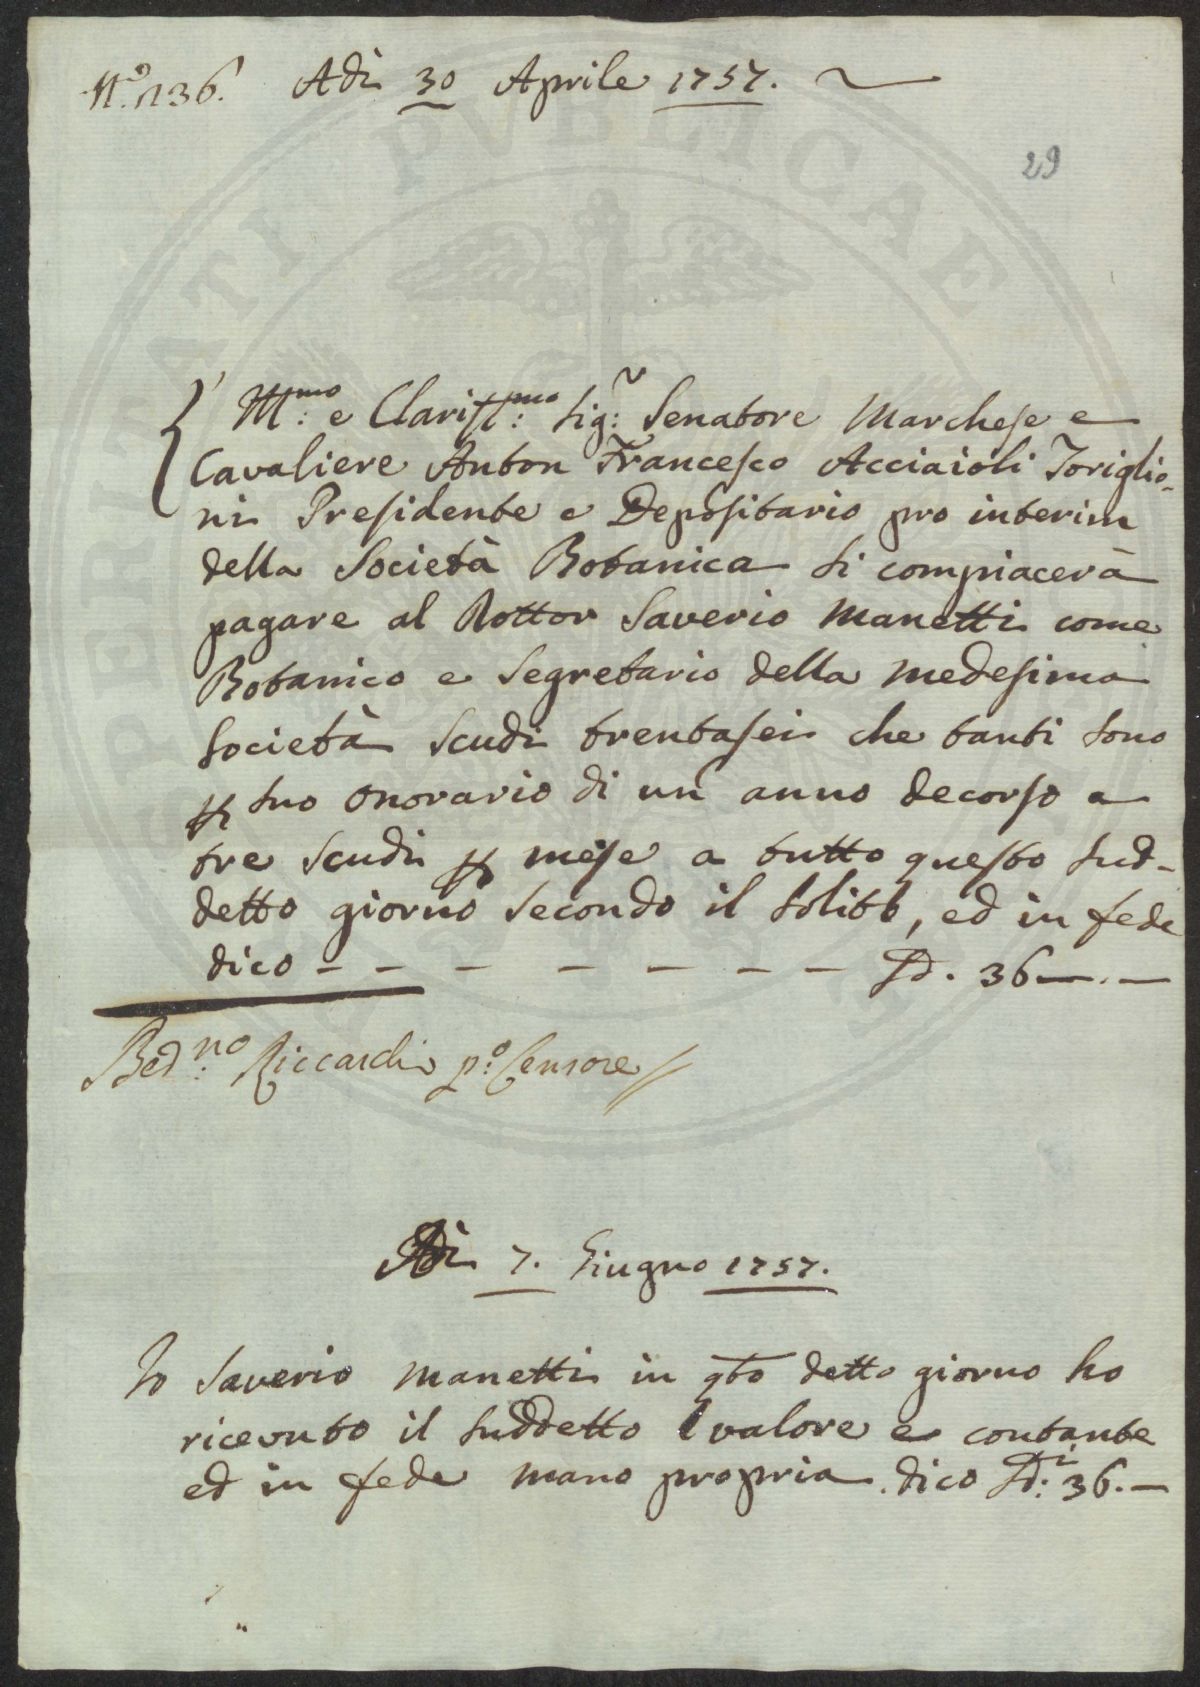 N.º 136. Adì 30 Aprile 1757.
29
Ill:mo e Clariss:mo Sig:r Senatore Marchese e
Cavaliere Anton Francesco Acciaioli Toriglio-
ni Presidente e Depositario pro interim
della Società Botanica si compiacerà
pagare al Dottor Saverio Manetti come
Botanico e Segretario della medesima
Società Scudi trentasei che tanti sono
p suo onorario di un anno decorso a
tre Scudi p mese a tutto questo sud-
detto giorno secondo il solito, ed in fede
dico - - - - - - - - Sd. 36—.—
Bed:no Riccardi p:o Censore
Adì 7. Giugno 1757.
Io Saverio Manetti in qto detto giorno ho
ricevuto il suddetto valore e contante
ed in fede mano propria dico Sdi: 36.—
PVBLICAE